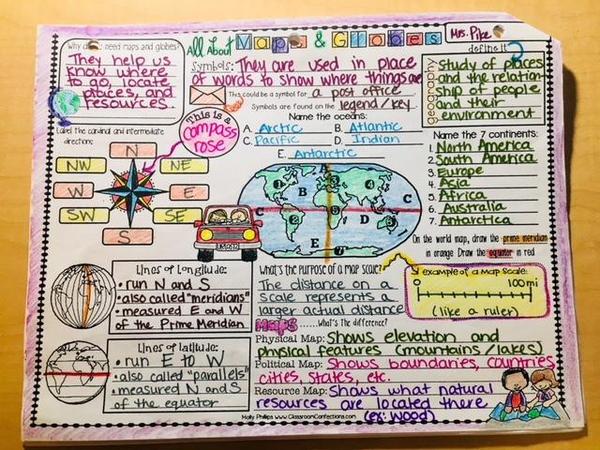 Why do we need maps and globes?
They help us
know where
to go, locate
places, and
resources.
All About Maps & Globes
Mrs. Pike
Symbols: They are used in place
of words to show where things are
This could be a symbol for a post office
Symbols are found on the legend/key
define it
geography
Study of places
and the relation-
ship of people
and their
environment
Name the oceans:
A. Arctic B. Atlantic
C. Pacific D. Indian
E. Antarctic
Label the cardinal and intermediate
directions:
This is a
compass
rose
N
NW NE
W E
SW SE
S
A
B
C
C
D
E
1
2
3
4
5
6
7
Name the 7 continents:
1. North America
2. South America
3. Europe
4. Asia
5. Africa
6. Australia
7. Antarctica
On the world map, draw the prime meridian
in orange. Draw the equator in red.
Lines of Longitude:
• run N and S
• also called "meridians"
• measured E and W
of the Prime Meridian
Lines of latitude:
• run E to W
• also called "parallels"
• measured N and S
of the equator
What's the purpose of a map scale?
The distance on a
scale represents a
larger actual distance
example of a Map Scale:
0 100 mi
(like a ruler)
Maps ......What's the difference?
Physical Map: Shows elevation and
physical features (mountains/lakes)
Political Map: Shows boundaries, countries,
cities, states, etc.
Resource Map: Shows what natural
resources are located there.
(ex: wood)
Molly Phillips www.ClassroomConfections.com